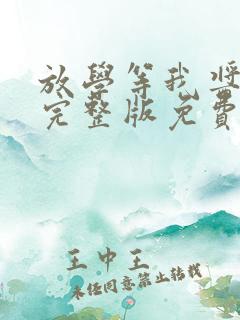 放學等我獎
完整版免費
王中王
未经同意禁止转载